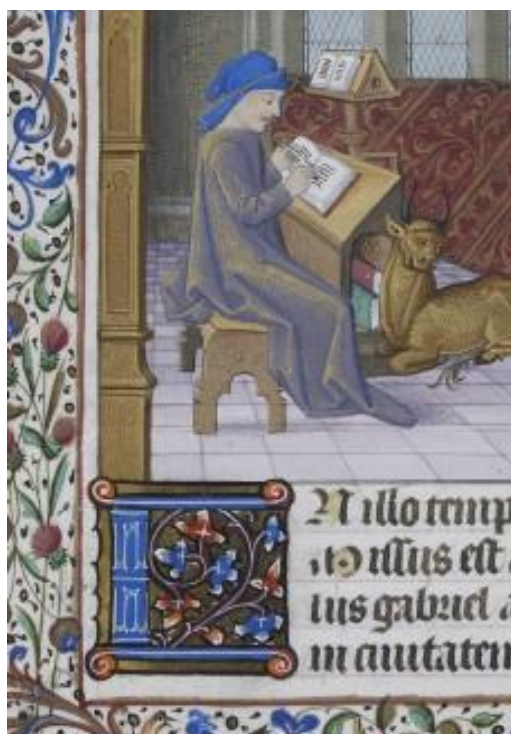 IN illo temp
Missus est
lus gabriel a
in ciuitatem